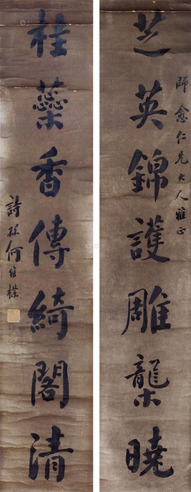 芝英錦護雕龑曉
即愈仁兄大人雅正
桂蘂香傳綺閣清
詩孫何維樸